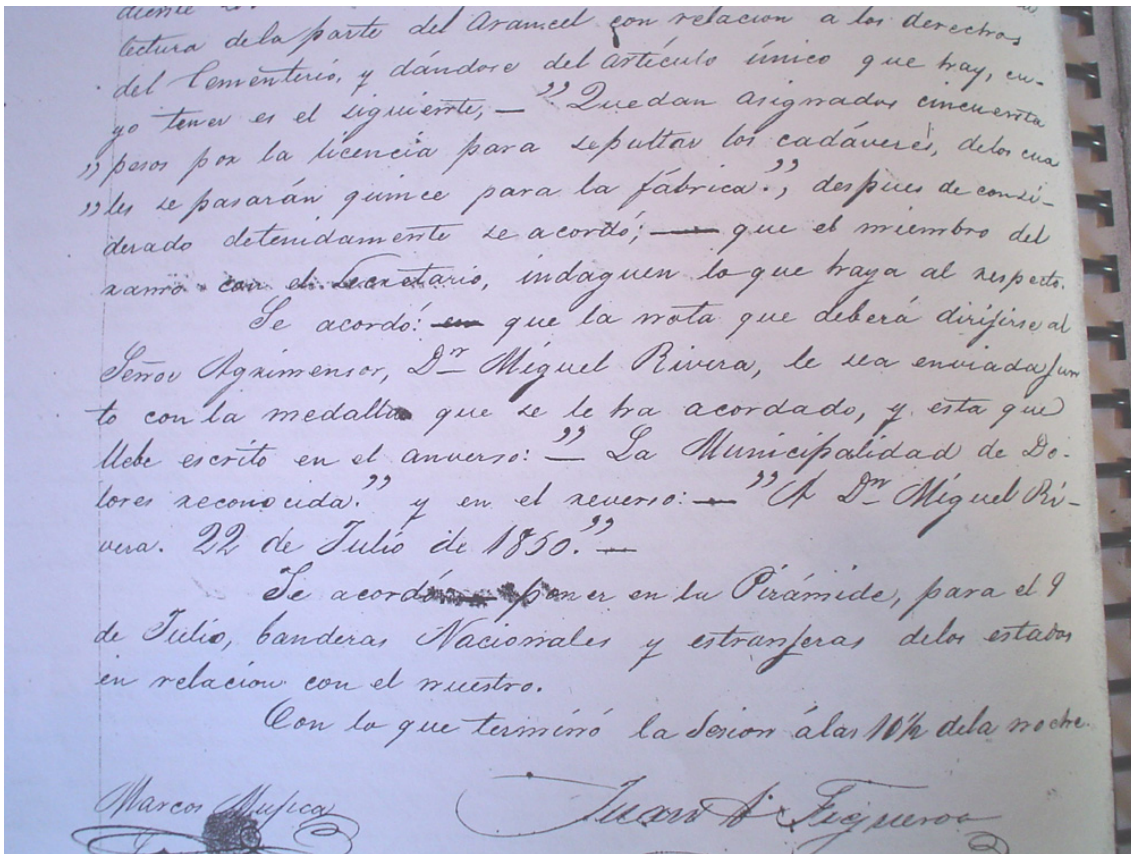 diente
lectura dela parte del Arancel con relacion a los derechos
del Cementerio, y dándose del artículo único que hay, cu-
yo tenor es el siguiente, — " Quedan asignados cincuenta
" pesos por la licencia para sepultar los cadáveres, delos cua
" les se pasarán quince para la fábrica.", despues de consi-
derado detenidamente se acordó; — que el miembro del
ramo con el Secretario, indaguen lo que haya al respecto.
Se acordó: que la nota que deberá dirijirse al
Señor Agrimensor, Dⁿ Miguel Rivera, le sea enviada jun
to con la medalla que se le ha acordado, y esta que
llebe escrito en el anverso: — " La Municipalidad de Do-
lores reconocida." y en el reverso: — " A Dⁿ Miguel Ri-
vera. 22 de Julio de 1850." —
Se acordó poner en la Pirámide, para el 9
de Julio, banderas Nacionales y estranjeras delos estados
en relacion con el nuestro.
Con lo que terminó la Sesion á las 10½ dela noche.
Marcos Mujica Juan A Figueroa